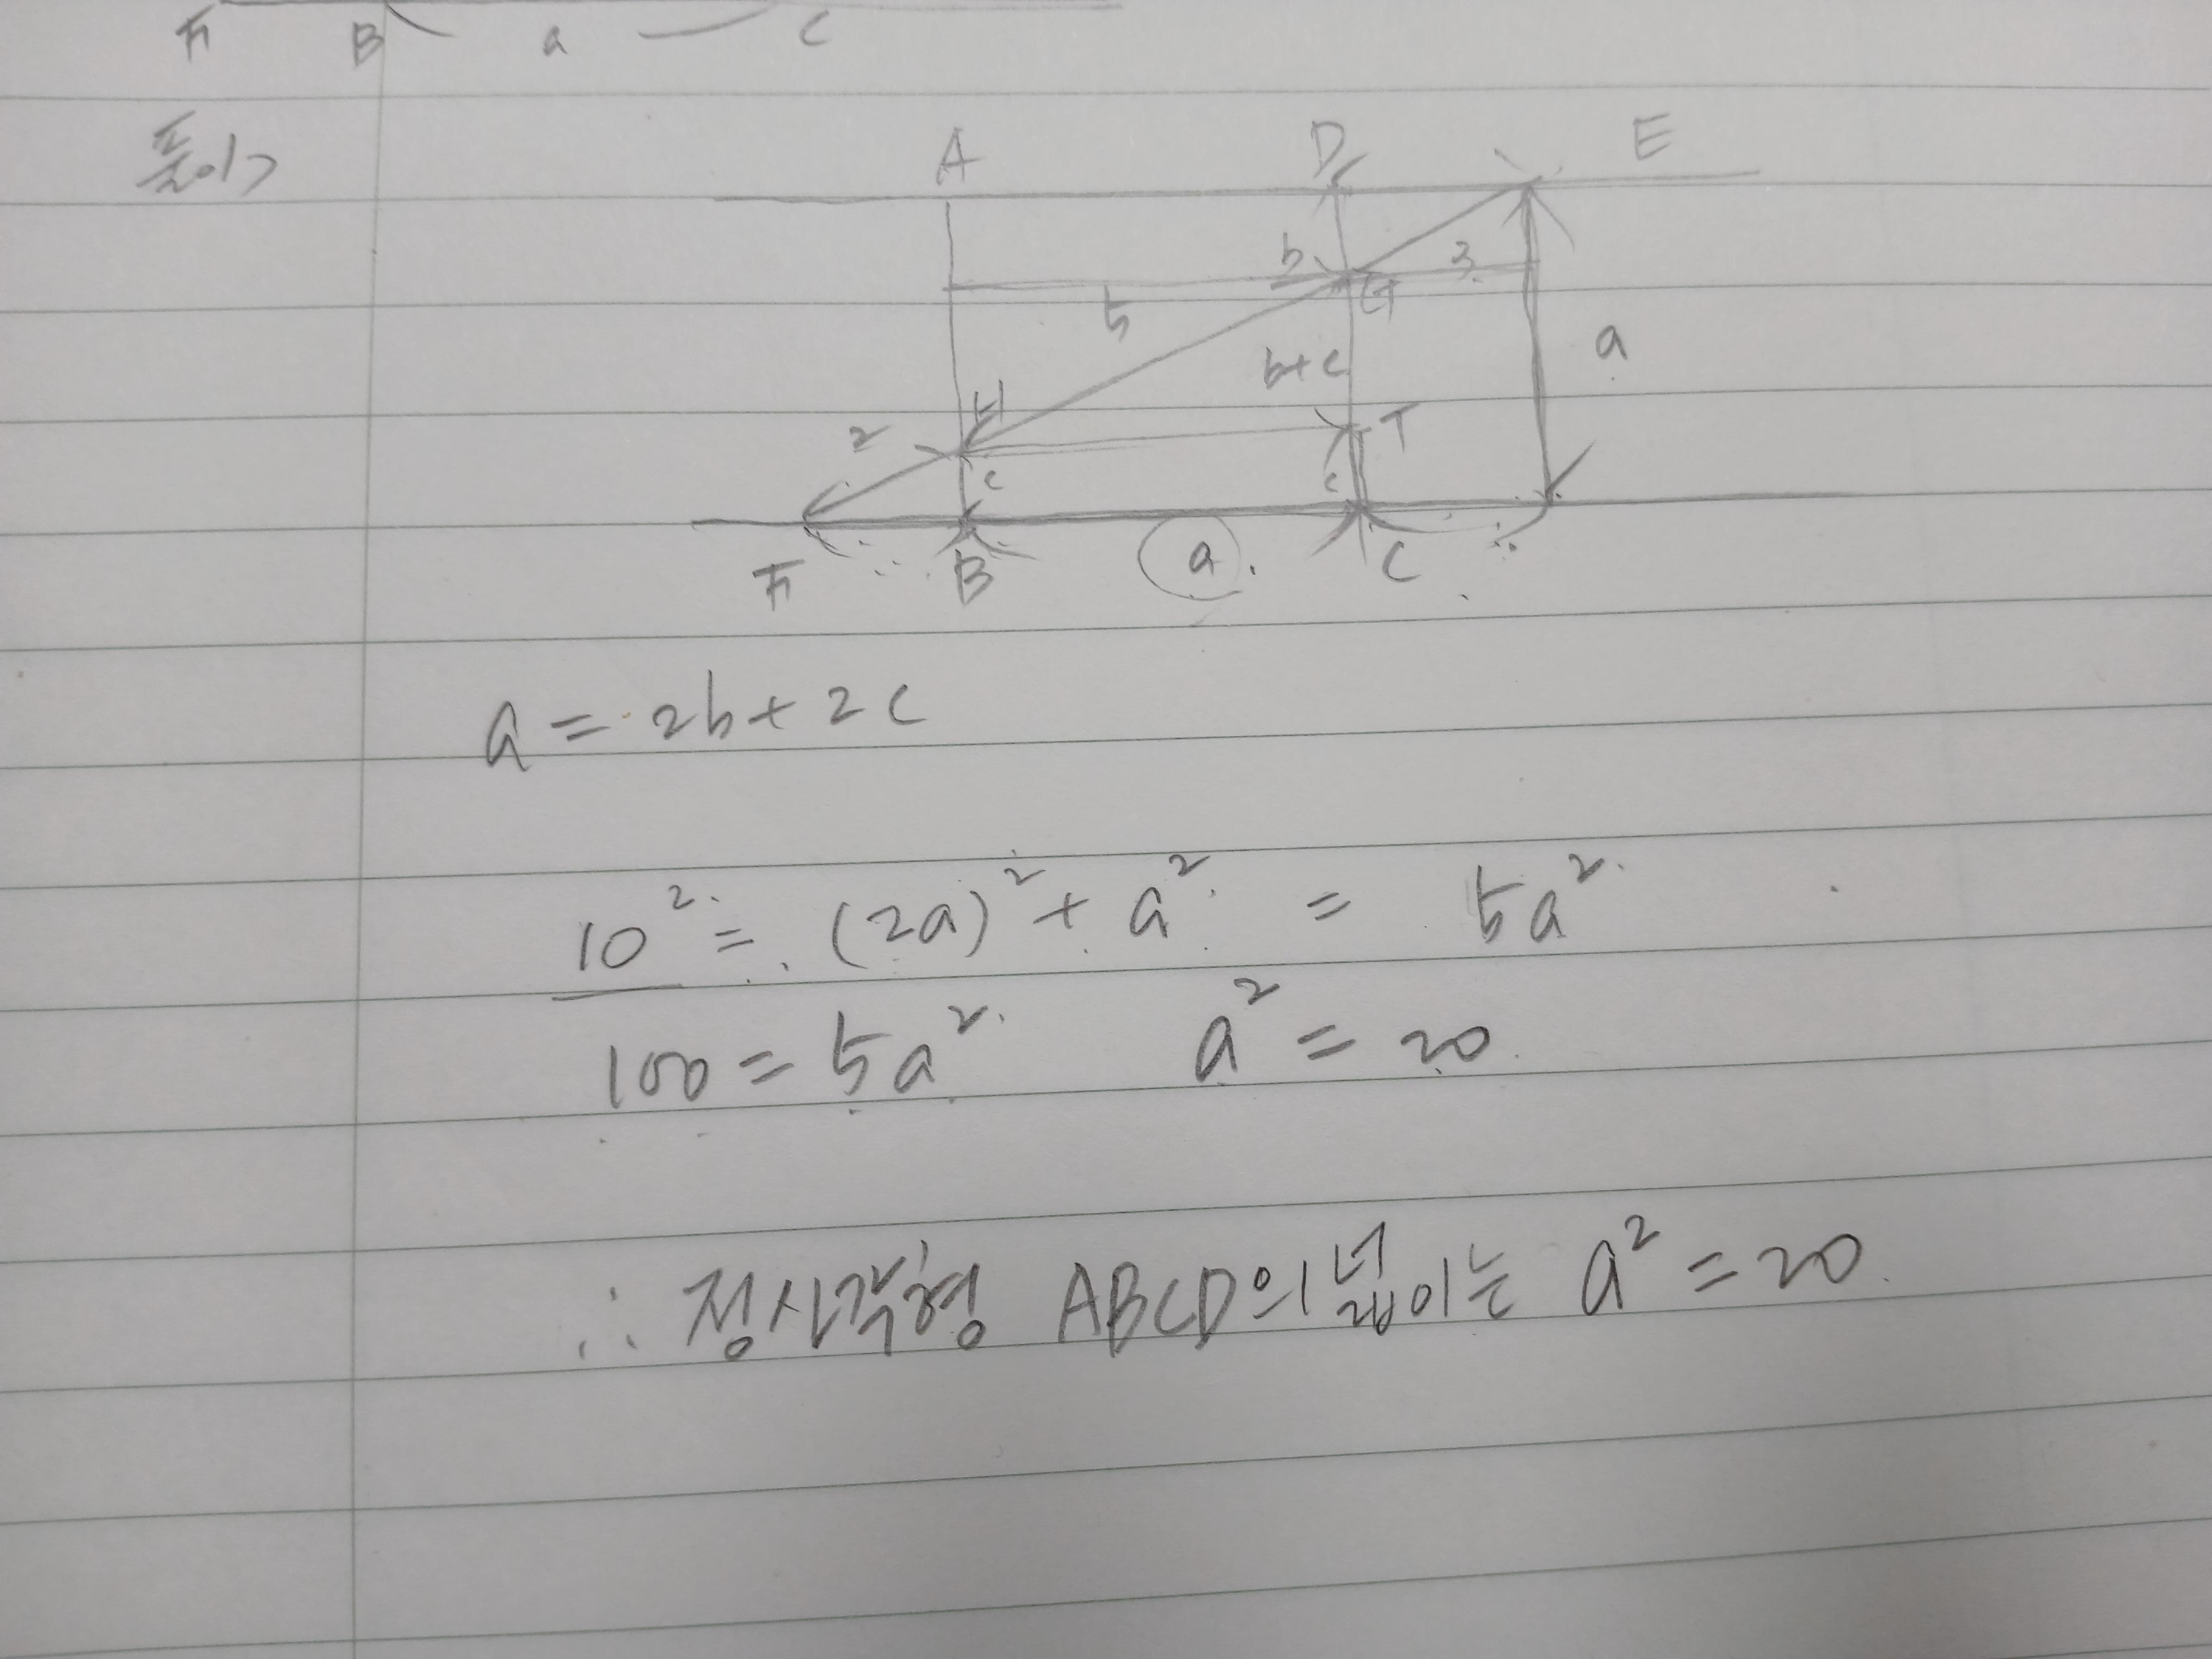 F B a C
풀이>
A D E
b 3
5 G
b+c a
H
2 T
c c
F B a. C
a = 2b + 2c
10² = (2a)² + a² = 5a²
100 = 5a² a² = 20.
∴ 정사각형 ABCD의 넓이는 a² = 20.